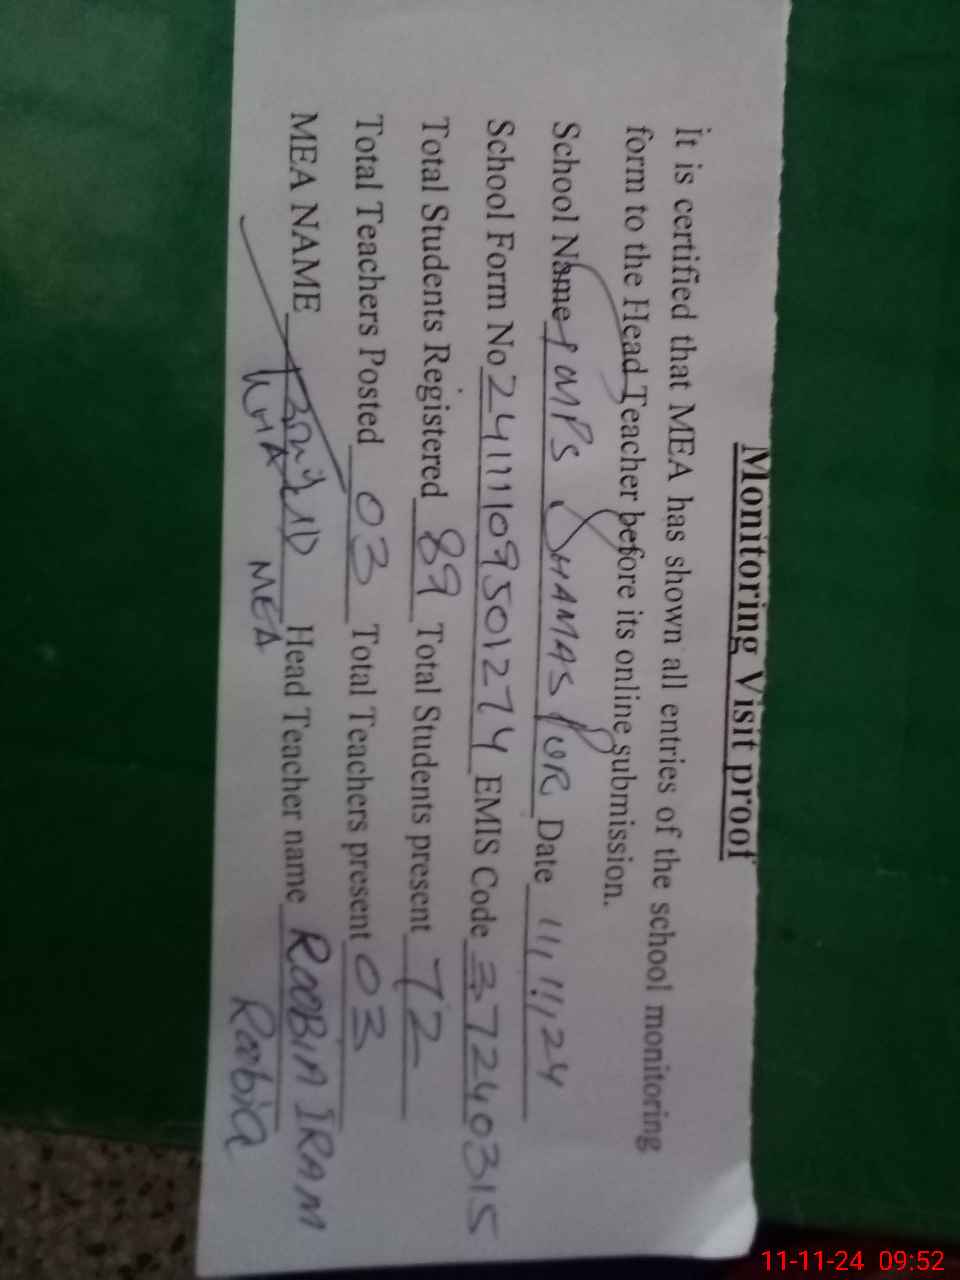 Monitoring Visit proof
it is certified that MEA has shown all entries of the school monitoring
form to the Head Teacher before its online submission.
School Name GMPS SHAMAS PUR Date 11,11,24
School Form No 241110950 1274 EMIS Code 37240315
Total Students Registered 89 Total Students present 72
Total Teachers Posted 03 Total Teachers present 03
MEA NAME Head Teacher name ROOBIA IRAM
MEA Roobia
11-11-24 09:52